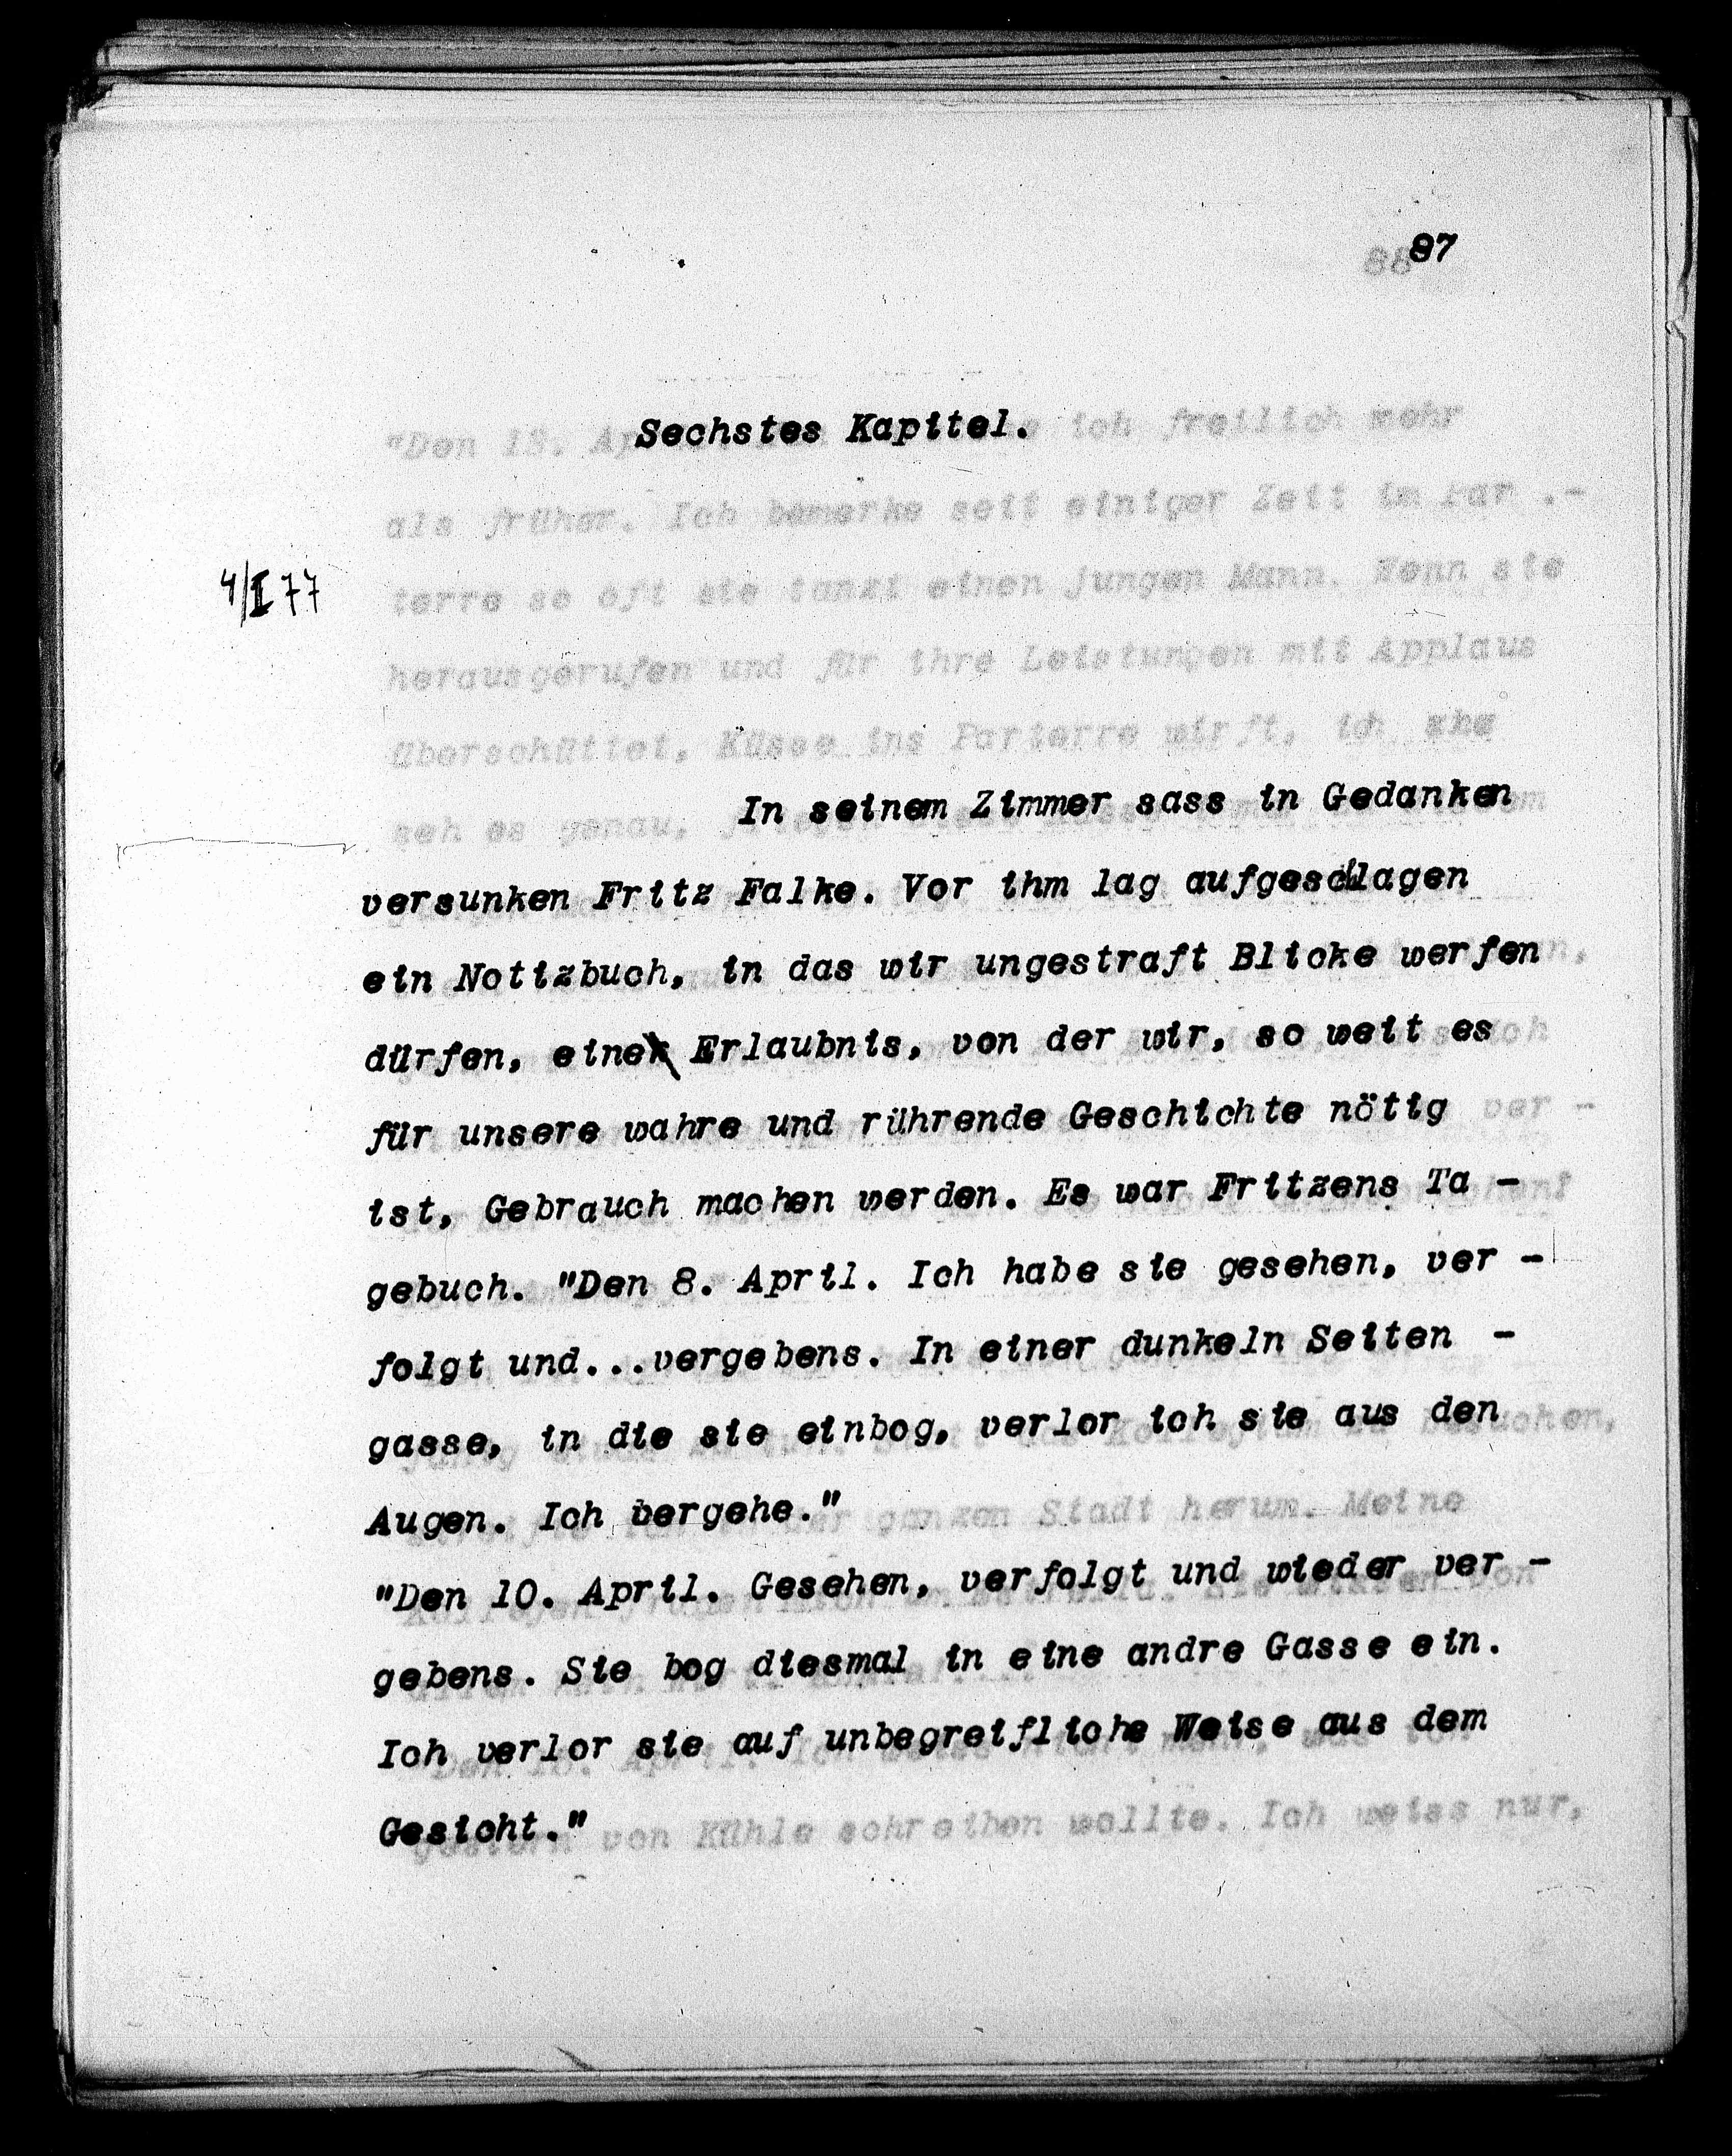 87
Sechstes Kapitel.
4/I 77
In seinem Zimmer sass in Gedanken
versunken Fritz Falke. Vor ihm lag aufgeschlagen
ein Notizbuch, in das wir ungestraft Blicke werfen
dürfen, eine Erlaubnis, von der wir, so weit es
für unsere wahre und rührende Geschichte nötig
ist, Gebrauch machen werden. Es war Fritzens Ta -
gebuch. "Den 8. April. Ich habe sie gesehen, ver -
folgt und...vergebens. In einer dunkeln Seiten -
gasse, in die sie einbog, verlor ich sie aus den
Augen. Ich vergehe."
"Den 10. April. Gesehen, verfolgt und wieder ver -
gebens. Sie bog diesmal in eine andre Gasse ein.
Ich verlor sie auf unbegreifliche Weise aus dem
Gesicht."